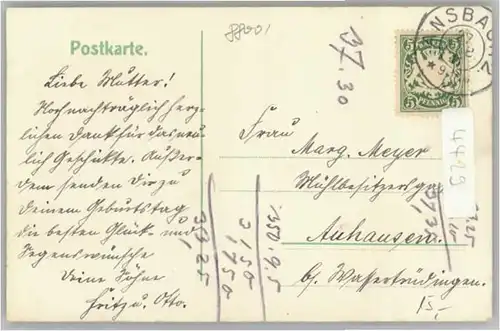 88001
Postkarte.
Liebe Mutter!
Noch nachträglich herz-
lichen Dank für das neu-
lich Geschickte. Außer-
dem senden Dir zu
Deinem Geburtstag
die besten Glück- und
Segenswünsche
Deine Söhne
Fritz u. Otto.
37.30
NSBAC
5 5
5 PFENNIG 5
Frau
Marg. Meyer
Mühlbesitzers
Auhausen.
b/ Wassertrüdingen.
4429
15,-